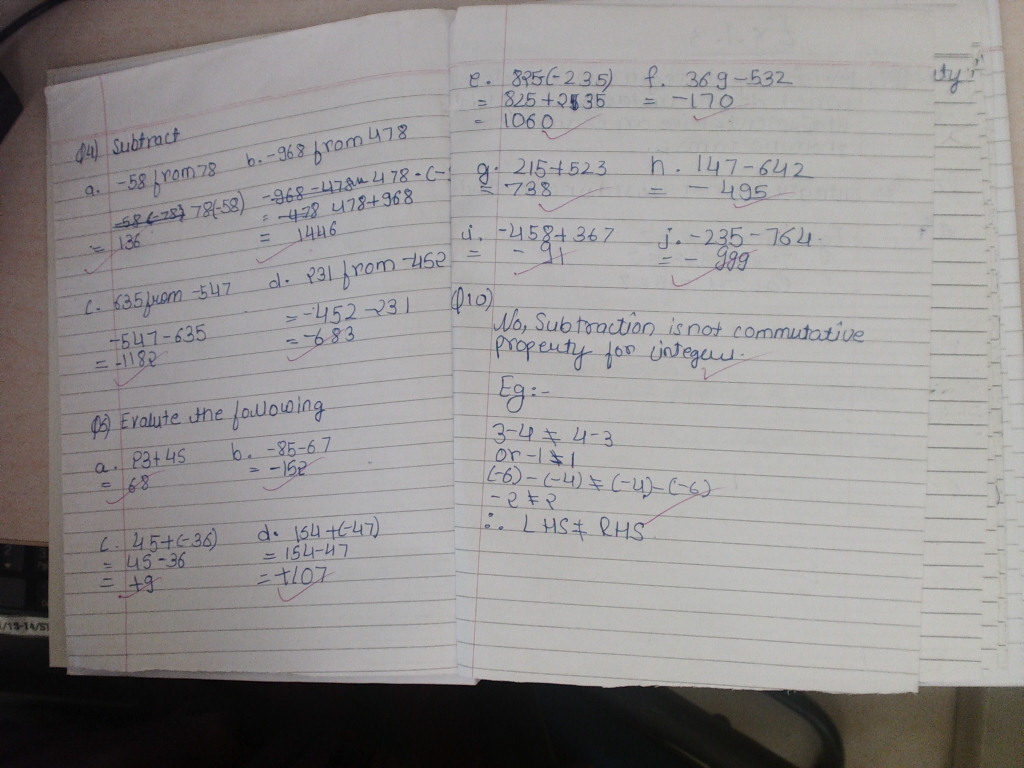 Q4) Subtract
a. -58 from 78 b. -968 from 478
78(-58) 478-(-
= 136 = 478+968
= 1446
c. 635 from -547 d. 231 from -452
-547-635 = -452-231
= -1182 = -683
Evalute the following
a. 23+45 b. -85-67
= 68 = -152
c. 45+(-36) d. 154+(-47)
= 45-36 = 154-47
= +9 = +107
e. 825(-235) f. 369-532
= 825+235 = -170
= 1060
g. 215+523 h. 147-642
= 738 = -495
i. -458+367 j. -235-764
= -91 = -999
Q10)
No, Subtraction is not commutative
property for integers.
Eg:-
3-4 ≠ 4-3
or -1 ≠ 1
(-6)-(-4) ≠ (-4)-(-6)
-2 ≠ 2
∴ LHS ≠ RHS
ity
1/13-14/51